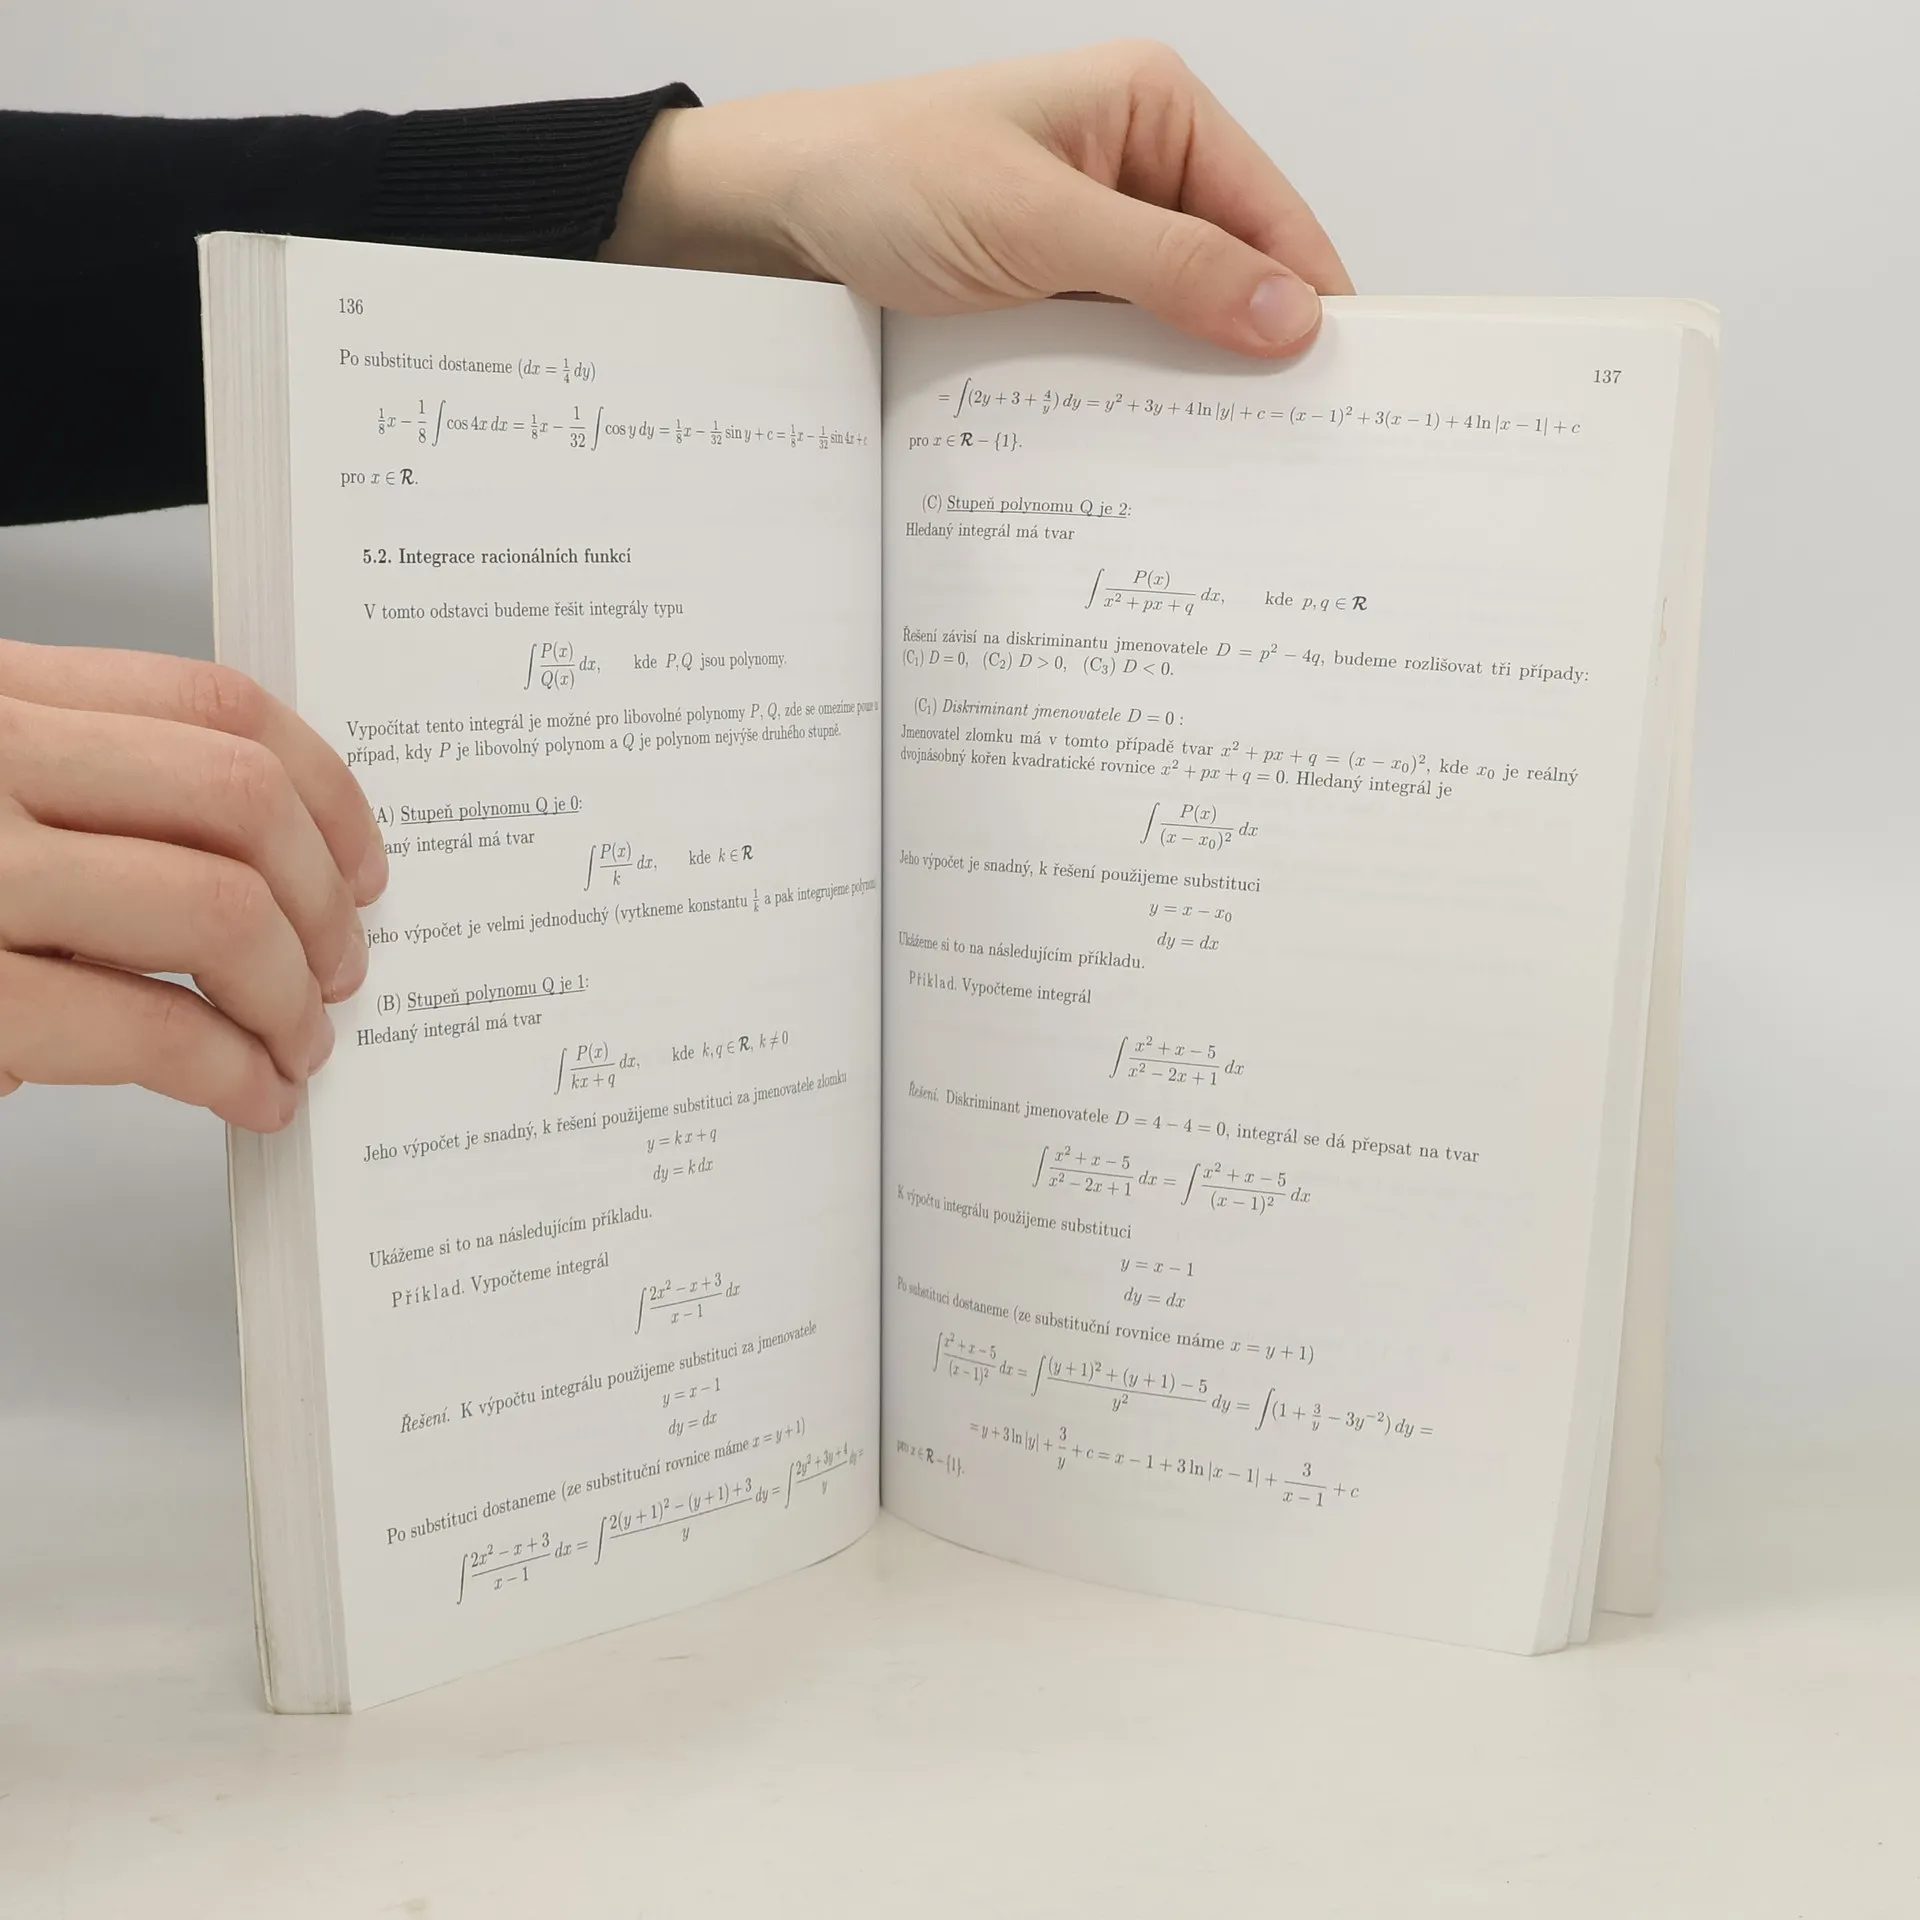 136
Po substituci dostaneme (dx = 1/4 dy)
1/8 x − 1/8 ∫ cos 4x dx = 1/8 x − 1/32 ∫ cos y dy = 1/8 x − 1/32 sin y + c = 1/8 x − 1/32 sin 4x + c
pro x ∈ R.
5.2. Integrace racionálních funkcí
V tomto odstavci budeme řešit integrály typu
∫ P(x)/Q(x) dx, kde P, Q jsou polynomy.
Vypočítat tento integrál je možné pro libovolné polynomy P, Q, zde se omezíme
případ, kdy P je libovolný polynom a Q je polynom nejvýše druhého stupně.
A) Stupeň polynomu Q je 0:
aný integrál má tvar
∫ P(x)/k dx, kde k ∈ R
jeho výpočet je velmi jednoduchý (vytkneme konstantu 1/k a pak integrujeme
(B) Stupeň polynomu Q je 1:
Hledaný integrál má tvar
∫ P(x)/(kx + q) dx, kde k, q ∈ R, k ≠ 0
Jeho výpočet je snadný, k řešení použijeme substituci za jmenovatele zlomku
y = kx + q
dy = k dx
Ukážeme si to na následujícím příkladu.
Příklad. Vypočteme integrál
∫ (2x² − x + 3)/(x − 1) dx
Řešení. K výpočtu integrálu použijeme substituci za jmenovatele
y = x − 1
dy = dx
Po substituci dostaneme (ze substituční rovnice máme x = y + 1)
∫ (2x² − x + 3)/(x − 1) dx = ∫ (2(y + 1)² − (y + 1) + 3)/y dy = ∫ (2y² + 3y + 4)/y dy =
137
= ∫(2y + 3 + 4/y) dy = y² + 3y + 4 ln |y| + c = (x − 1)² + 3(x − 1) + 4 ln |x − 1| + c
pro x ∈ R − {1}.
(C) Stupeň polynomu Q je 2:
Hledaný integrál má tvar
∫ P(x)/(x² + px + q) dx, kde p, q ∈ R
Řešení závisí na diskriminantu jmenovatele D = p² − 4q, budeme rozlišovat tři případy:
(C₁) D = 0, (C₂) D > 0, (C₃) D < 0.
(C₁) Diskriminant jmenovatele D = 0 :
Jmenovatel zlomku má v tomto případě tvar x² + px + q = (x − x₀)², kde x₀ je reálný
dvojnásobný kořen kvadratické rovnice x² + px + q = 0. Hledaný integrál je
∫ P(x)/(x − x₀)² dx
Jeho výpočet je snadný, k řešení použijeme substituci
y = x − x₀
dy = dx
Ukážeme si to na následujícím příkladu.
Příklad. Vypočteme integrál
∫ (x² + x − 5)/(x² − 2x + 1) dx
Řešení. Diskriminant jmenovatele D = 4 − 4 = 0, integrál se dá přepsat na tvar
∫ (x² + x − 5)/(x² − 2x + 1) dx = ∫ (x² + x − 5)/(x − 1)² dx
K výpočtu integrálu použijeme substituci
y = x − 1
dy = dx
Po substituci dostaneme (ze substituční rovnice máme x = y + 1)
∫ (x² + x − 5)/(x − 1)² dx = ∫ ((y + 1)² + (y + 1) − 5)/y² dy = ∫(1 + 3/y − 3y⁻²) dy =
= y + 3 ln |y| + 3/y + c = x − 1 + 3 ln |x − 1| + 3/(x − 1) + c
pro x ∈ R − {1}.